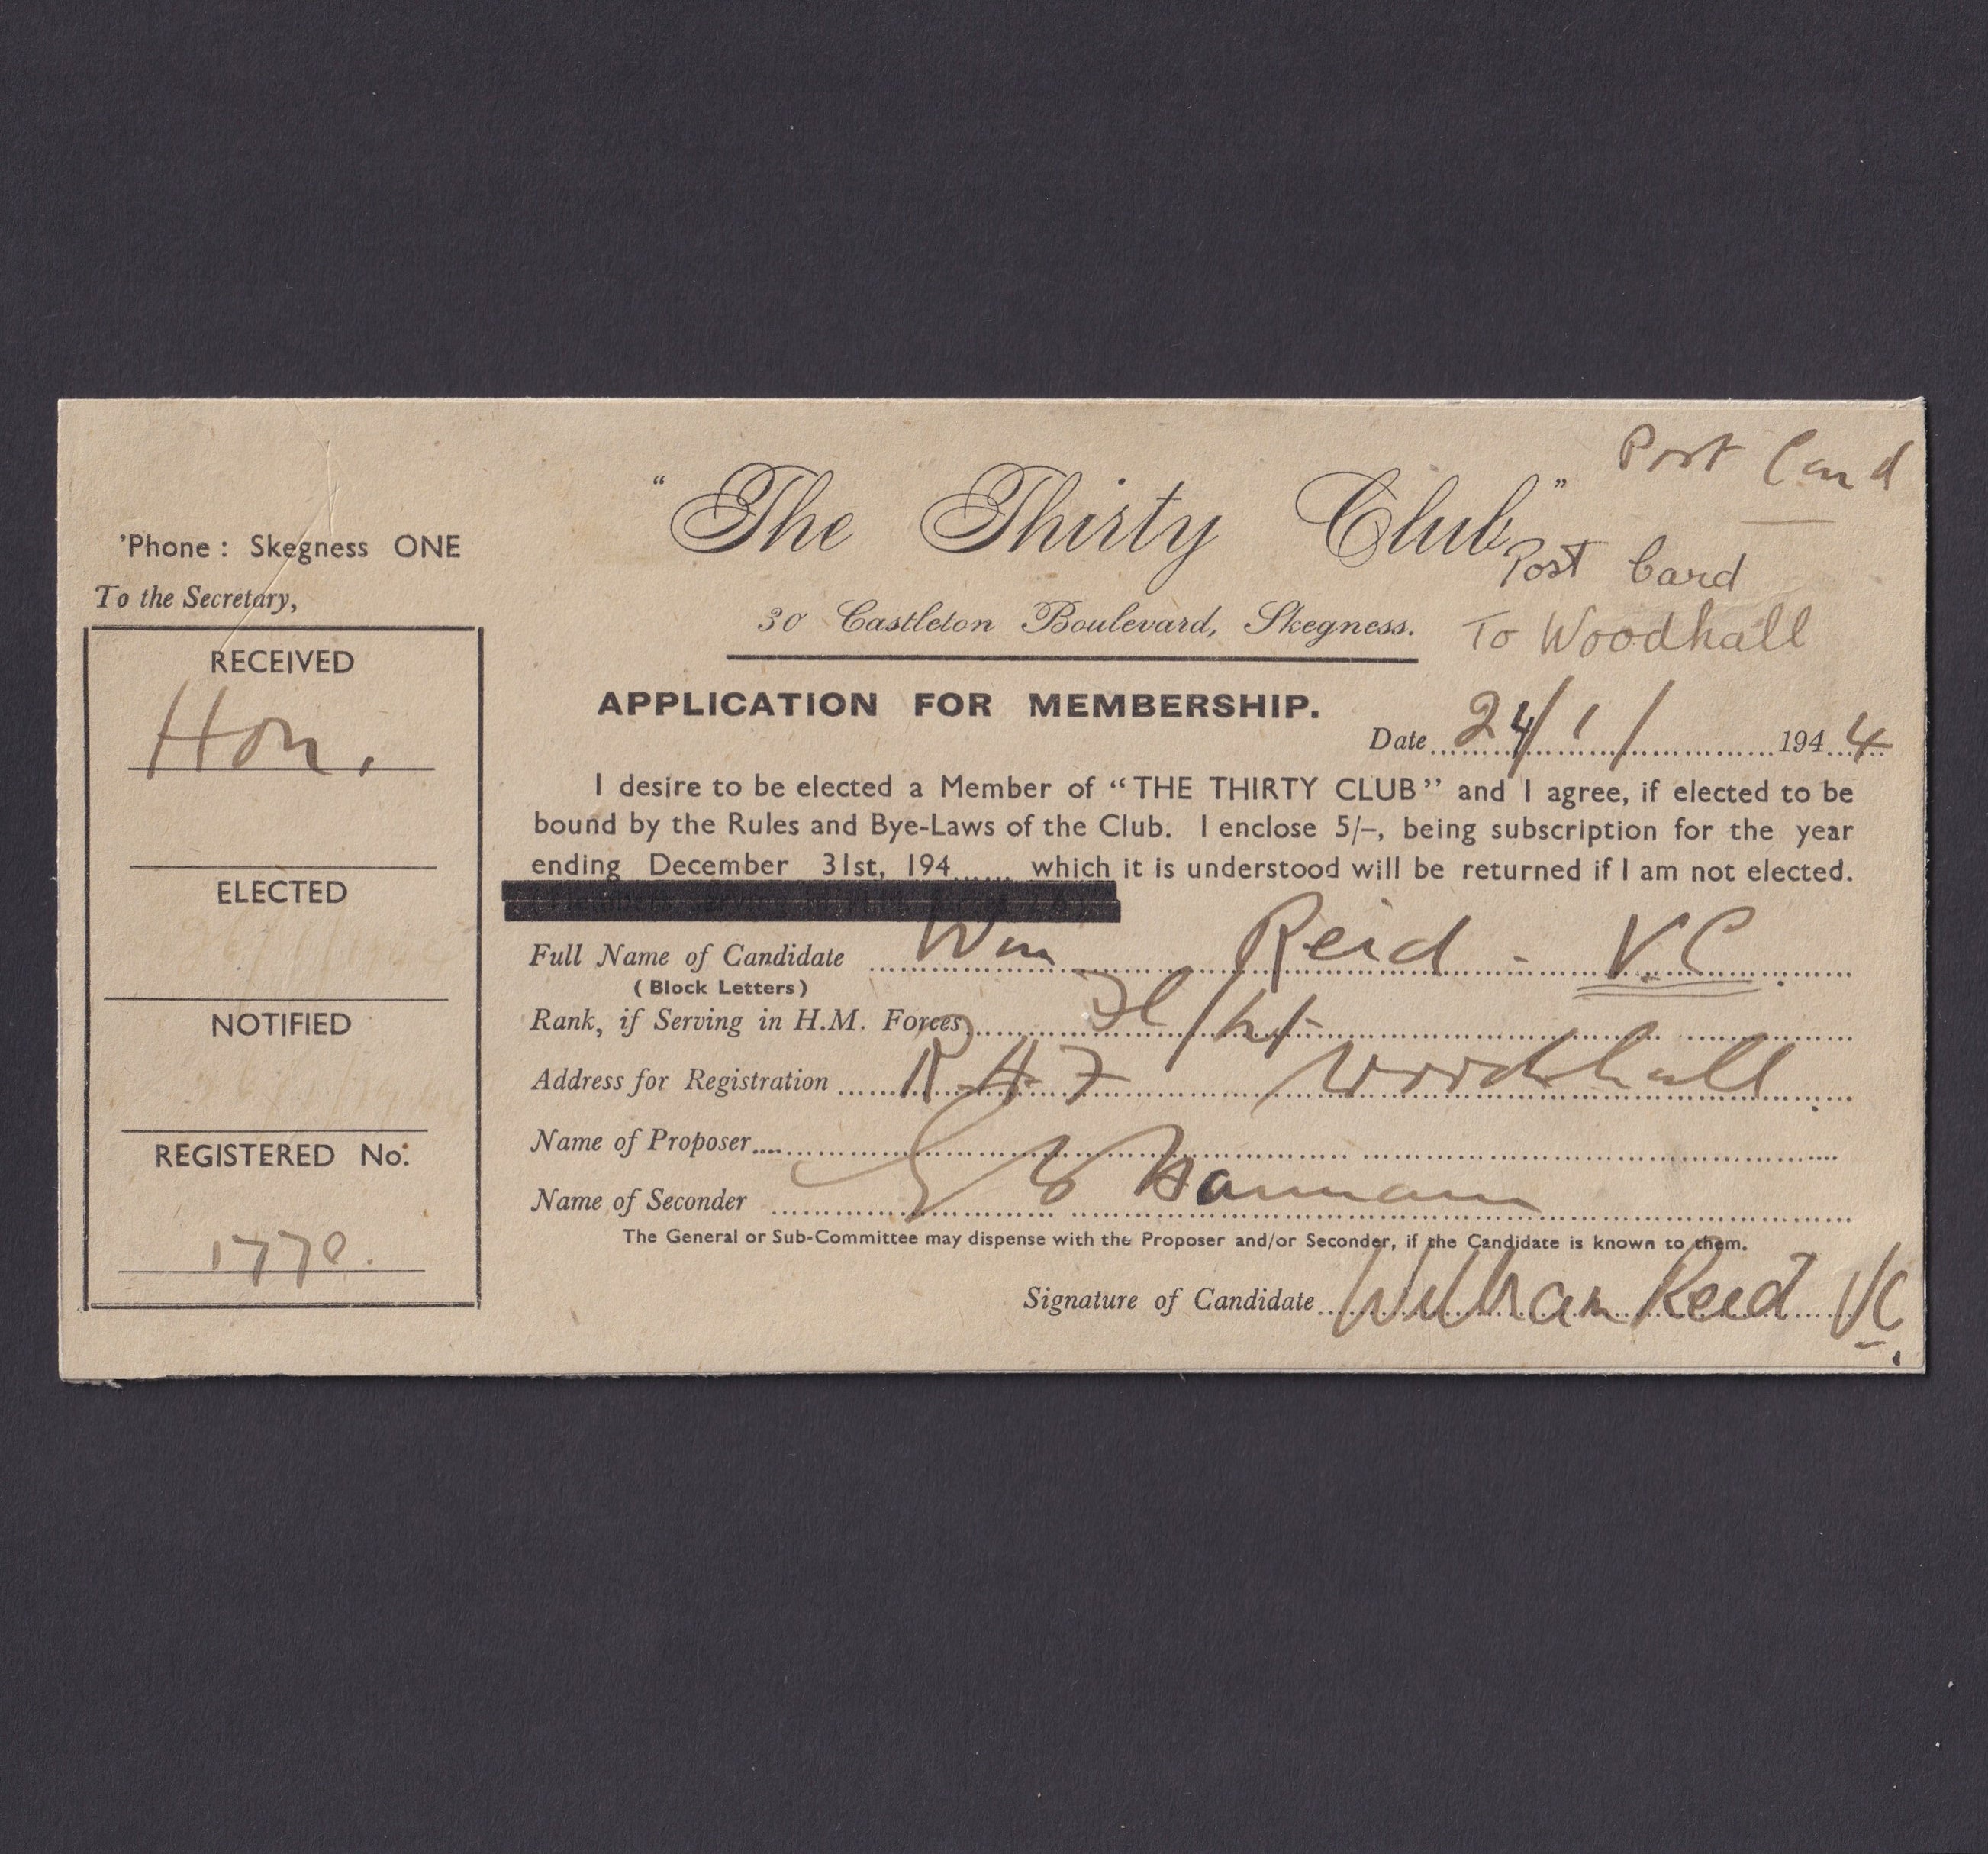 Post Card
"The Thirty Club"
Post Card
'Phone : Skegness ONE
To the Secretary,
30 Castleton Boulevard, Skegness.
To Woodhall
RECEIVED
Hon.
ELECTED
NOTIFIED
REGISTERED No.
1770.
APPLICATION FOR MEMBERSHIP.
Date 24/1/ 1944
I desire to be elected a Member of "THE THIRTY CLUB" and I agree, if elected to be
bound by the Rules and Bye-Laws of the Club. I enclose 5/-, being subscription for the year
ending December 31st, 194...... which it is understood will be returned if I am not elected.
Full Name of Candidate Wm Reid - VC.
(Block Letters)
Rank, if Serving in H.M. Forces Fl/Lt
Address for Registration RAF Woodhall.
Name of Proposer
Name of Seconder
The General or Sub-Committee may dispense with the Proposer and/or Seconder, if the Candidate is known to them.
Signature of Candidate William Reid VC.